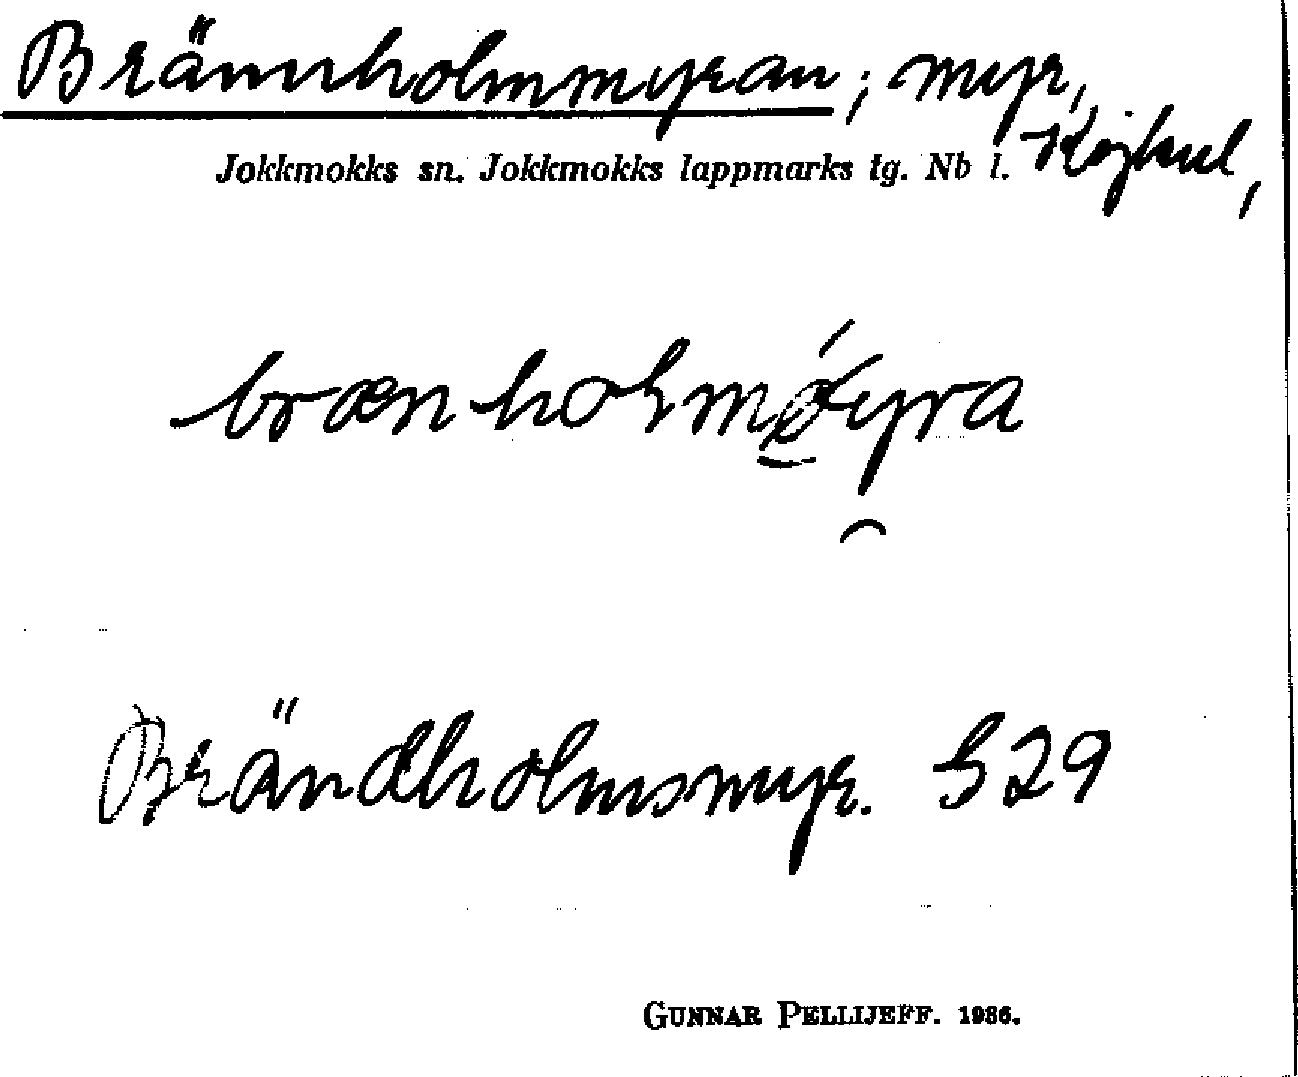 Brännholmmyran; myr,
Jokkmokks sn. Jokkmokks lappmarks tg. Nb l.
brænholmøyra
Brändholmsmyr. S29
GUNNAR PELLIJEFF. 1986.